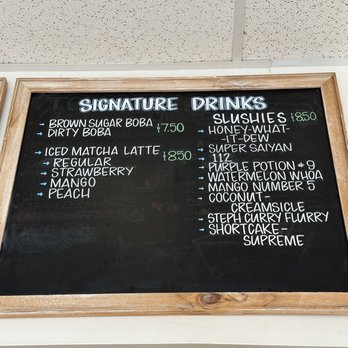 SIGNATURE DRINKS
→ BROWN SUGAR BOBA $7.50
→ DIRTY BOBA
→ ICED MATCHA LATTE $8.50
→ REGULAR
→ STRAWBERRY
→ MANGO
→ PEACH
SLUSHIES $8.50
→ HONEY-WHAT-
-IT-DEW
→ SUPER SAIYAN
→ 112
→ PURPLE POTION #9
→ WATERMELON WHOA
→ MANGO NUMBER 5
→ COCONUT-
CREAMSICLE
→ STEPH CURRY FLURRY
→ SHORTCAKE-
SUPREME